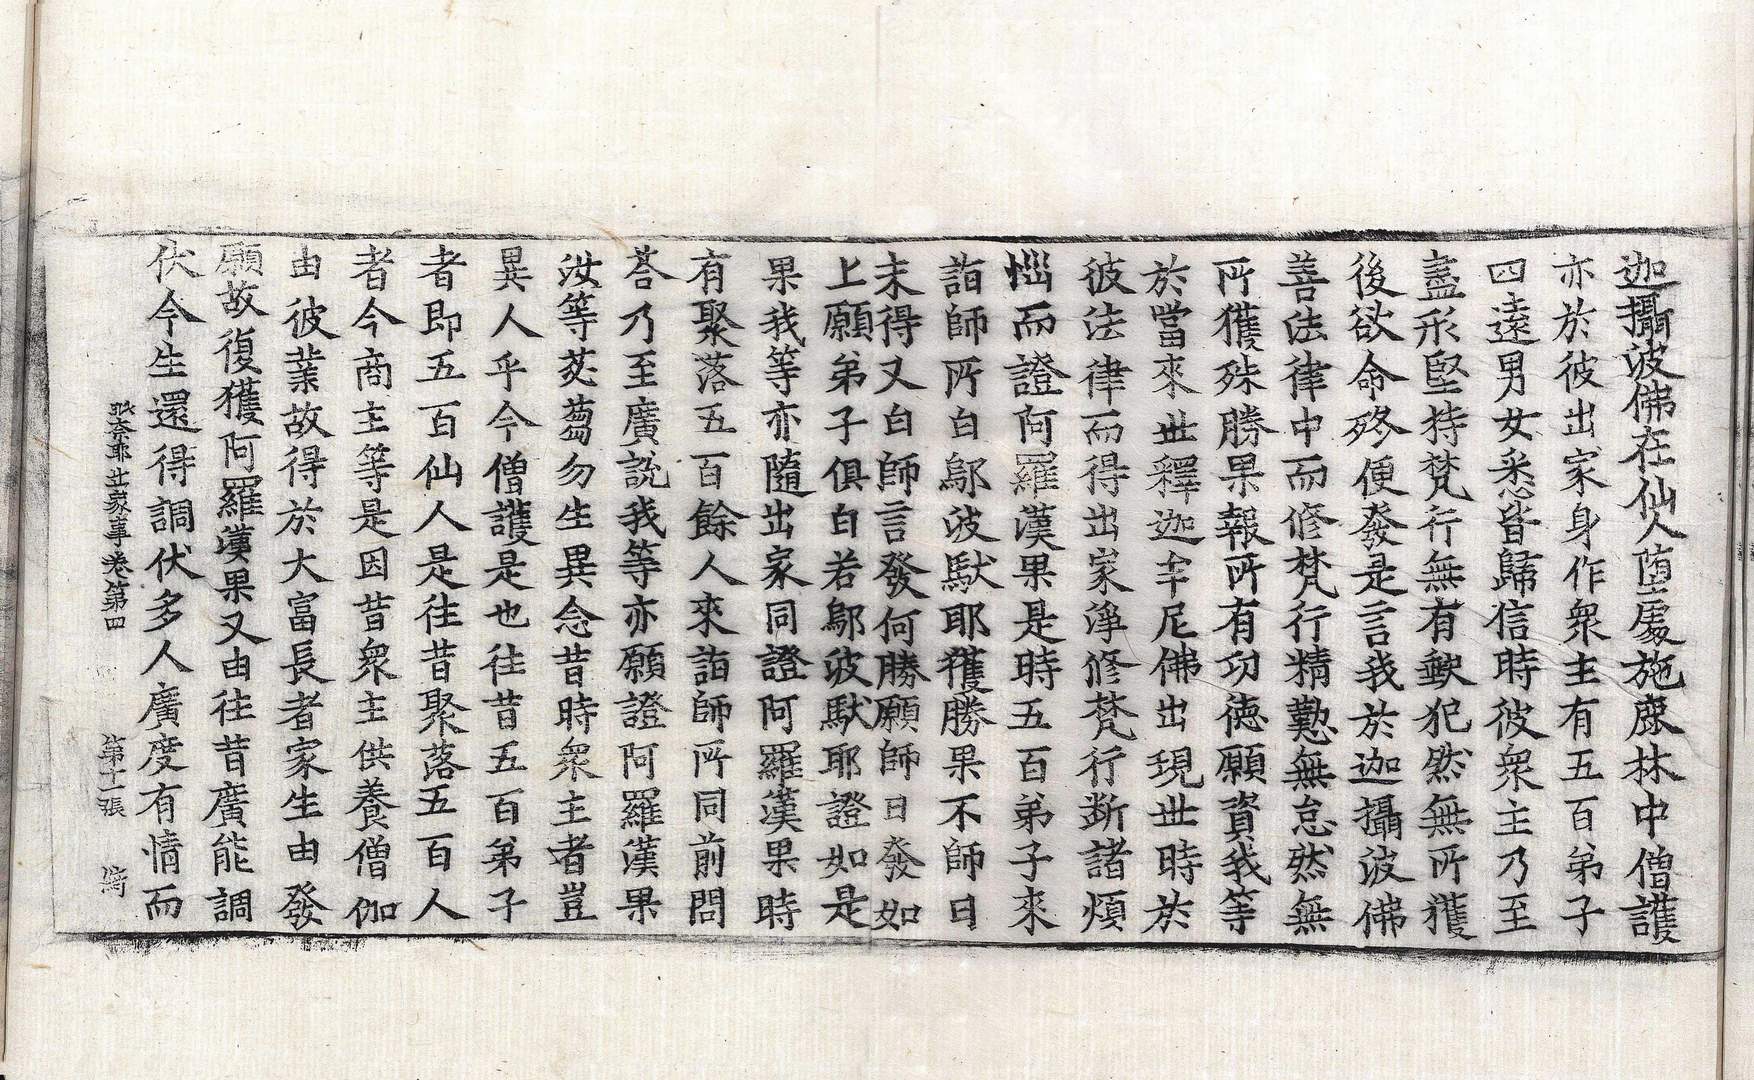 迦攝波佛在仙人堕處施鹿林中僧護
亦於彼出家身作衆主有五百弟子
四遠男女悉皆歸信時彼衆主乃至
盡形堅持梵行無有𡙇犯然無所獲
後欲命終便發是言我於迦攝波佛
善法律中而修梵行精勤無怠然無
所獲殊勝果報所有功德願資我等
於當來世釋迦牟尼佛出現世時於
彼法律而得出家淨修梵行断諸煩
惱而證阿羅漢果是時五百弟子來
詣師所白鄔波馱耶獲勝果不師曰
未得又白師言發何勝願師曰發如
上願弟子俱白若鄔波馱耶證如是
果我等亦隨出家同證阿羅漢果時
有聚落五百餘人來詣師所同前問
荅乃至廣說我等亦願證阿羅漢果
汝等苾蒭勿生異念昔時衆主者豈
異人乎今僧護是也往昔五百弟子
者即五百仙人是往昔聚落五百人
者今商主等是因昔衆主供養僧伽
由彼業故得於大富長者家生由發
願故復獲阿羅漢果又由往昔廣能調
伏今生還得調伏多人廣度有情而
奈耶出家事卷第四 第十一張